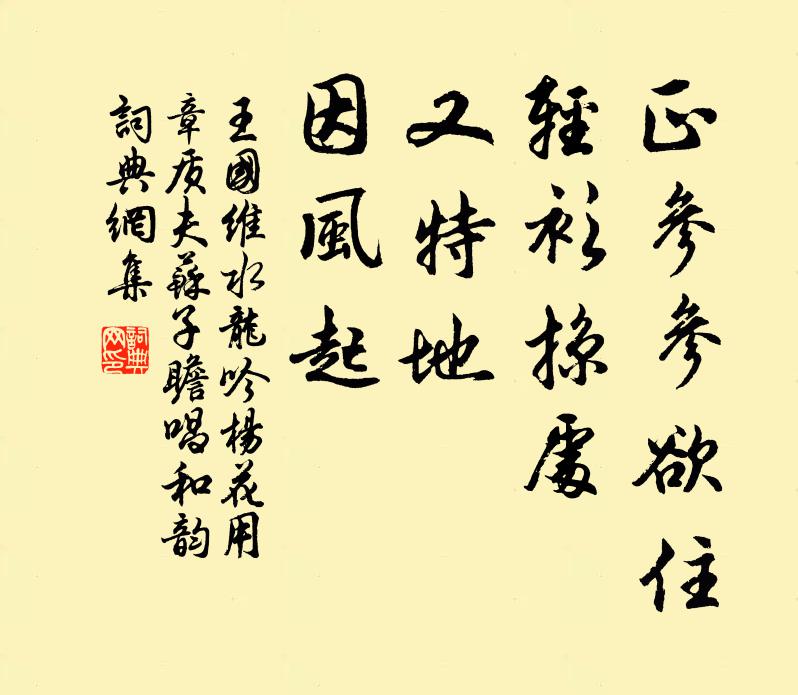 正參參欲住
輕衫掠處
又特地
因風起
王國維水龍吟楊花用
章质夫蘇子瞻唱和韵
詞典網集
詞典
网印